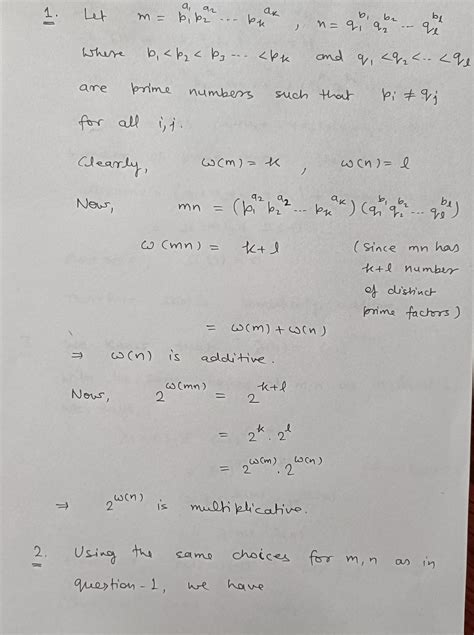 1. Let m = p₁^{a₁} p₂^{a₂} ... p_k^{a_k} , n = q₁^{b₁} q₂^{b₂} ... q_l^{b_l}
where p₁ < p₂ < p₃ ... < p_k and q₁ < q₂ < .. < q_l
are prime numbers such that p_i ≠ q_j
for all i, j.
Clearly, ω(m) = k , ω(n) = l
Now, mn = (p₁^{a₂} p₂^{a₂} ... p_k^{a_k}) (q₁^{b₁} q₂^{b₂} ... q_l^{b_l})
ω(mn) = k+l (since mn has
k+l number
of distinct
prime factors)
= ω(m) + ω(n)
⇒ ω(n) is additive.
Now, 2^{ω(mn)} = 2^{k+l}
= 2^k . 2^l
= 2^{ω(m)} . 2^{ω(n)}
⇒ 2^{ω(n)} is multiplicative.
2. Using the same choices for m, n as in
question-1, we have